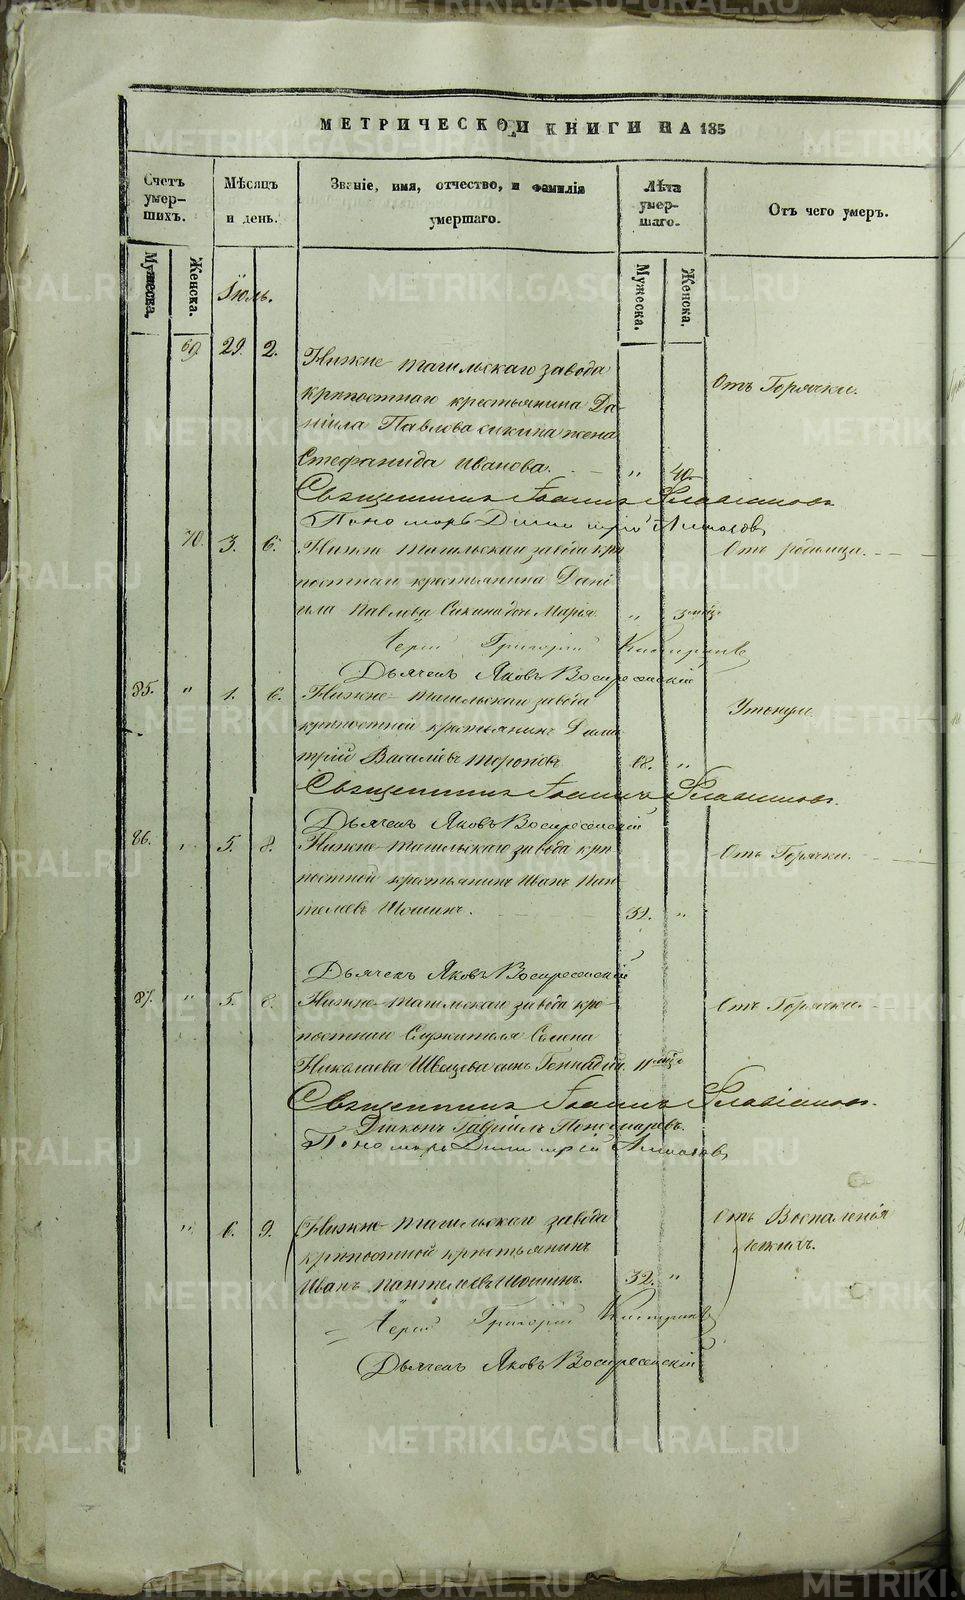 МЕТРИЧЕСКОЙ КНИГИ НА 185
Счетъ умер-шихъ.
Мѣсяцъ и день.
Званіе, имя, отчество, и фамилія умершаго.
Лѣта умер-шаго.
Отъ чего умеръ.
Мужеска.
Женска.
Мужеска.
Женска.
Іюль.
69. 29. 2. Нижне-тагильскаго завода
крѣпостнаго крестьянина Да-
ніила Павлова Сикина жена
Стефанида Иванова. " 40.
Отъ Горячки.
Священникъ Іоаннъ Флавіановъ
Пономарь Димитрій
70. 3. 6. Нижне-тагильскаго завода крѣ-
постнаго крестьянина Дані-
ила Павлова Сикина дочь Марія " 3 мѣс.
Отъ родимца.
Іерей Григорій
Дьячекъ Яковъ Воскресенскій
85. " 1. 6. Нижне-тагильскаго завода
крѣпостной крестьянинъ Дими-
трій Василіевъ 18. "
Утонулъ.
Священникъ Іоаннъ Флавіановъ.
Дьячекъ Яковъ Воскресенскій
86. " 5. 8. Нижне-тагильскаго завода крѣ-
постной крестьянинъ Иванъ Пан-
телеевъ Шошинъ. 32. "
Отъ Горячки.
Дьячекъ Яковъ Воскресенскій
87. " 5. 8. Нижне-тагильскаго завода крѣ-
постнаго Служителя Семена
Николаева Швецова сынъ Геннадій. 11 мѣс.
Отъ Горячки.
Священникъ Іоаннъ Флавіановъ.
Діаконъ Гавріилъ Пономаревъ.
Пономарь Димитрій
" 6. 9. Нижне-тагильскаго завода
крѣпостной крестьянинъ
Иванъ Пантелеевъ Шошинъ. 32. "
Отъ Воспаленія
легкихъ.
Іерей Григорій
Дьячекъ Яковъ Воскресенскій
METRIKI.GASO-URAL.RU